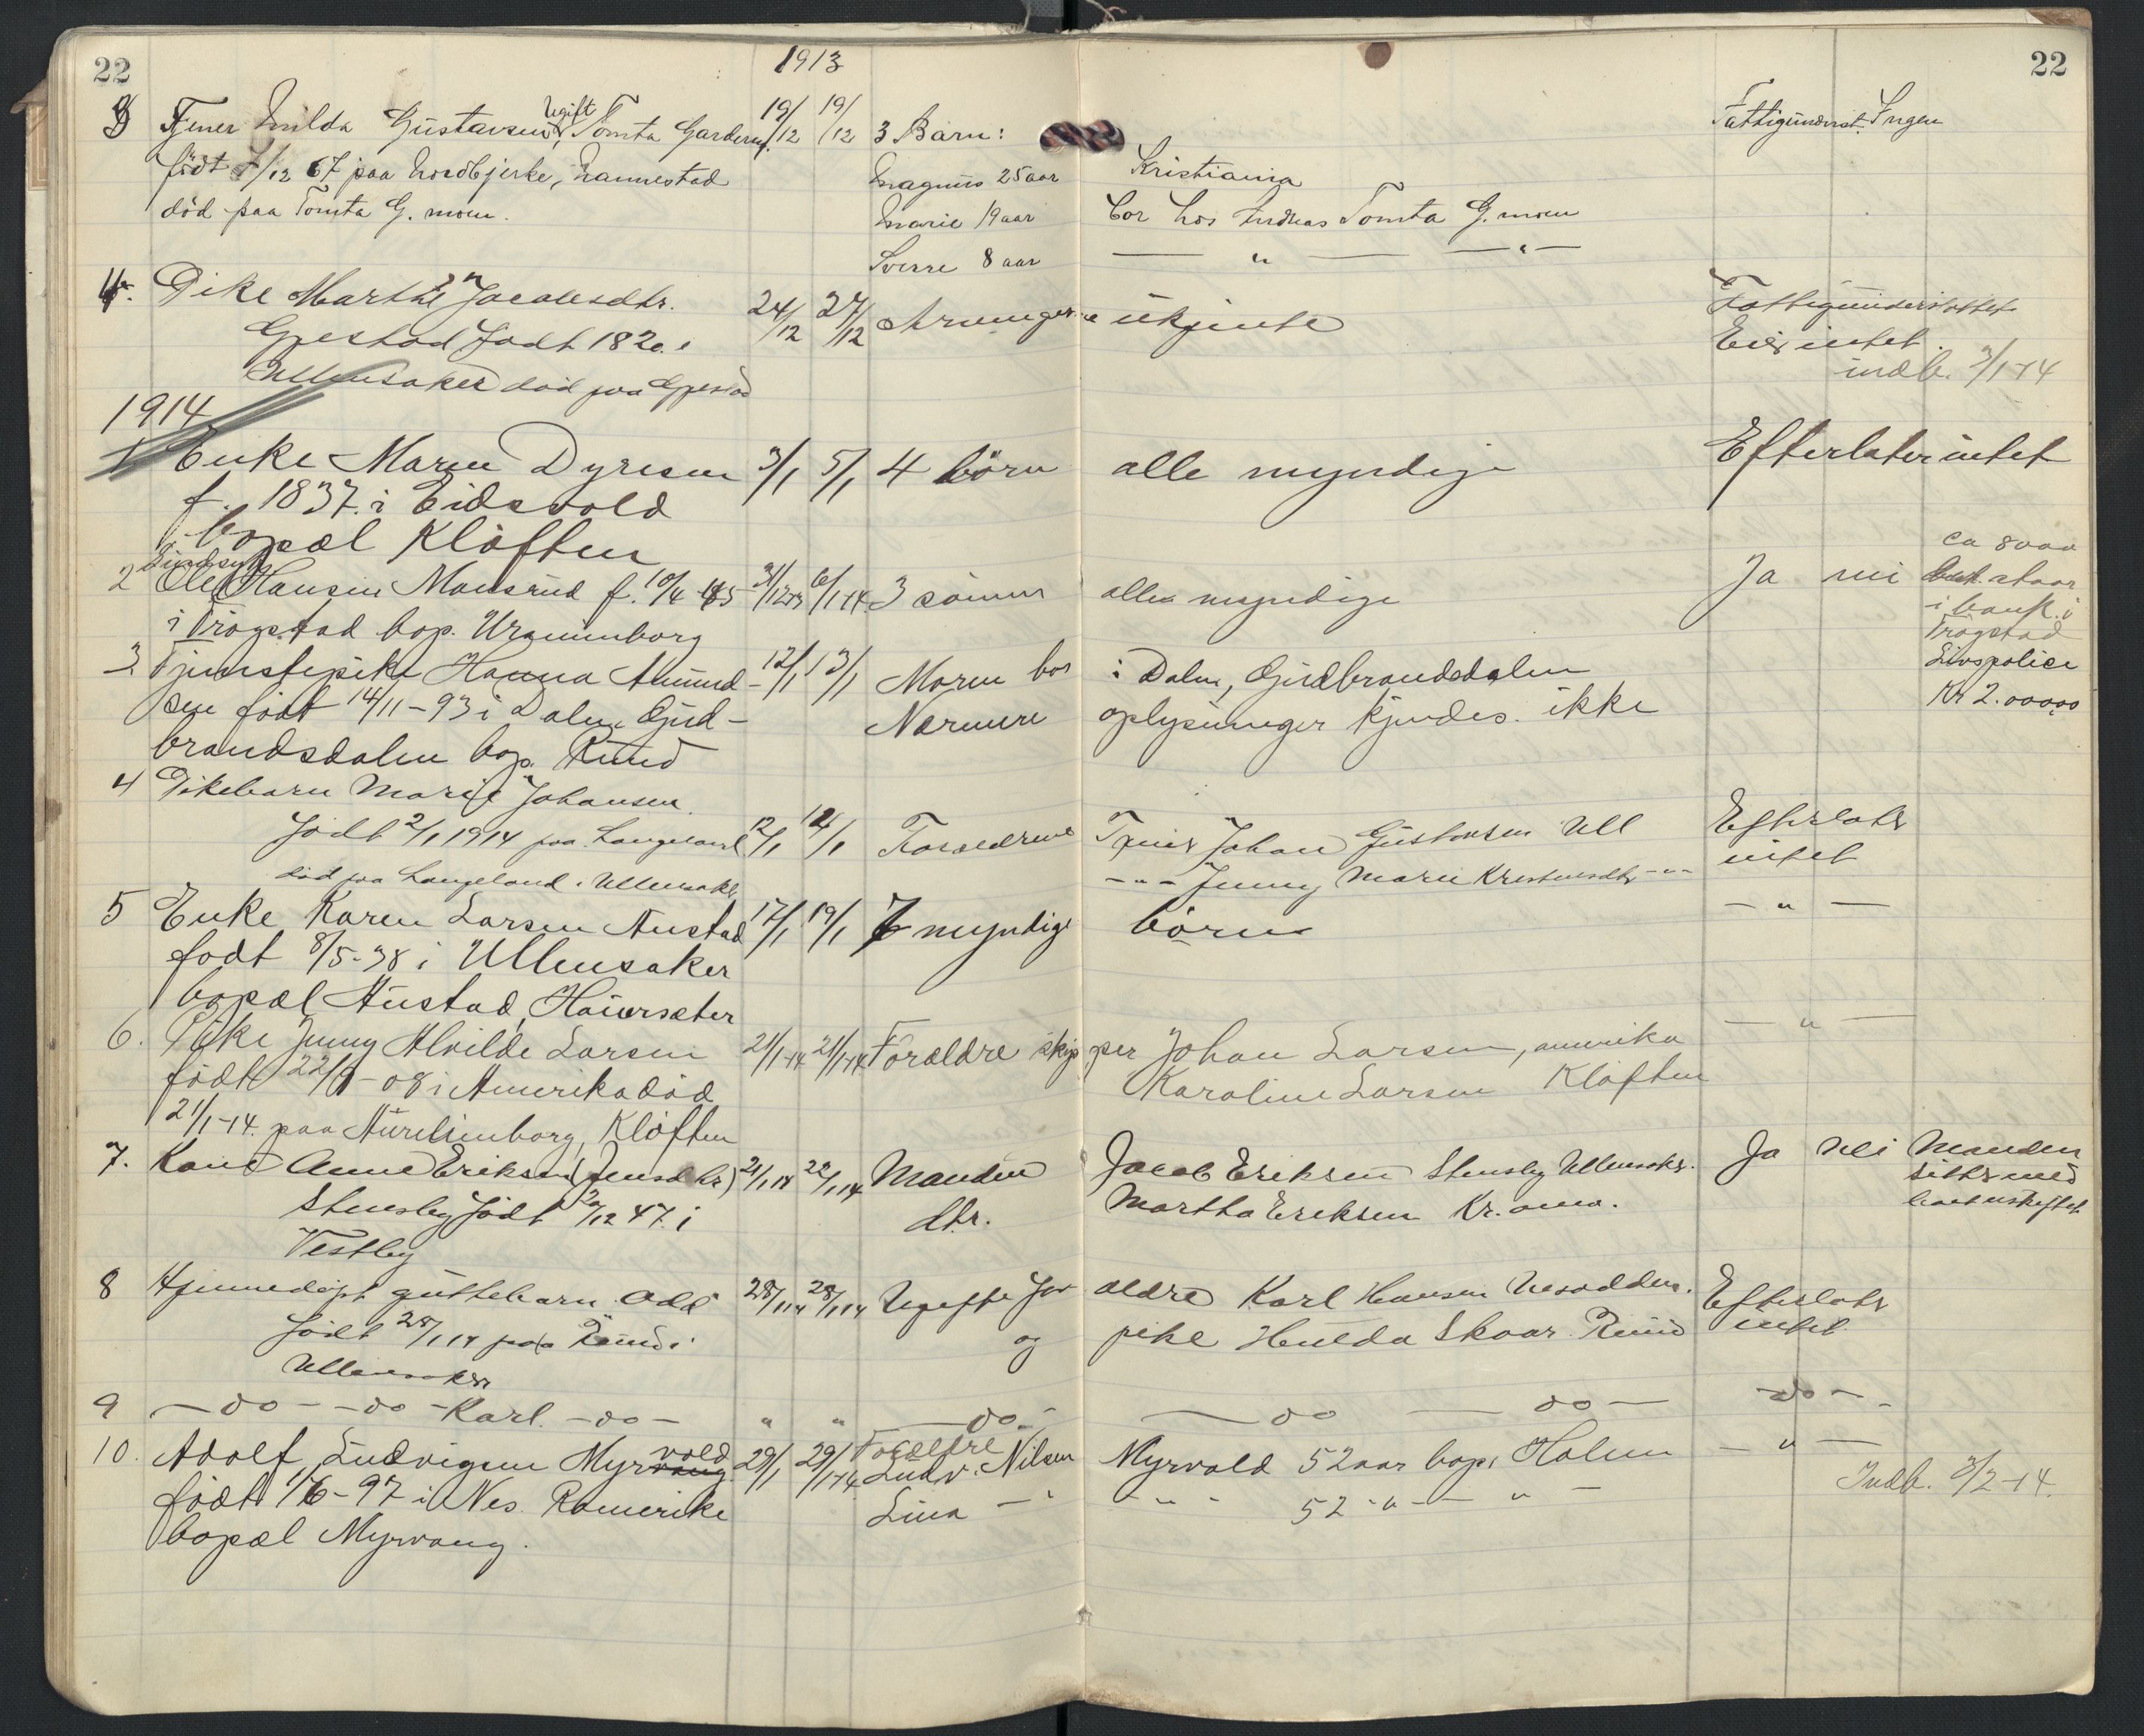 22 1913 22
Tjener Milda Gustavsen, Ugift Tomta Garderm. 19/12 19/12 3 Barn: Fattigunderst. Ingen
født 7/12 67 paa Nordbjerke, Nannestad Magnus 25 aar Kristiania
død paa Tomta G. moen. Marie 19 aar bor hos Andreas Tomta G. moen
Sverre 8 aar — " — — " —
4. Pike Marthe Jacobsdtr. 24/12 27/12 Arvinger ukjente Fattigunderstøttet
Gjestad født 1820 i Eier intet.
Ullensaker død paa Gjestad indb. 3/1-14
1914
1 Enke Maren Dyresen 3/1 5/1 4 børn alle myndige Efterlater intet
f. 1837. i Eidsvold
bopæl Kløften
2 Sindssyg Ole Hansen Mansrud f. 10/4-45 31/12-13 6/1-14 3 sønner alle myndige Ja nei ca 8000
i Trøgstad bop. Uranienborg staar
i bank i
Trøgstad
3. Tjenestepike Hanna Amund- 12/1 13/1 Moren bor i Dalen, Gudbrandsdalen Livspolice
sen født 14/11-93 i Dalen Gud- Nærmere oplysninger kjendes ikke Kr 2.000,00
brandsdalen bop. Ruud
4 Pikebarn Marie Johansen.
født 2/1 1914 paa Langeland 12/1 12/1 Forældrene Tjener Johan Gustavsen Ull Efterlater
død paa Langeland i Ullensaker - " - Jenny Marie Kristensdtr - " - intet
5 Enke Karen Larsen Austad 17/1 19/1 7 myndige børn — " —
født 8/5-38 i Ullensaker
bopæl Austad, Hauerseter
6. Pike Jenny Alvilde Larsen 21/1-14 21/1-14 Forældre skipper Johan Larsen, amerika — " —
født 22/9-08 i Amerika død Karoline Larsen Kløften
21/1-14. paa Aurelienborg, Kløften
7. Kone Anne Eriksen (Jensdtr) 21/1 14 22/1 14 Manden Jacob Eriksen Stensby Ullensaker. Ja Nei Manden
Stensby født 2/12 47 i dtr. Martha Eriksen Kr.ania. sitter med
Vestby
8 Hjemmedøpt guttebarn Odd 28/1 14 28/1 14 Ugifte forældre Karl Hansen Nesodden. Efterlater
født 28/1 14 paa Ruud i og pike Hulda Skaar Ruud intet
Ullensaker
9 — do — — do — Karl. — do — " " — do — — do — do — — do —
10. Adolf Ludvigsen Myrvold 29/1 29/1-14 Forældre Ludv. Nilsen Myrvold 52 aar bop. Holm — " —
født 1/6-97 i Nes Romerike Lina — " - " - 52 - " - — " — Indb. 3/2-14.
bopæl Myrvang.